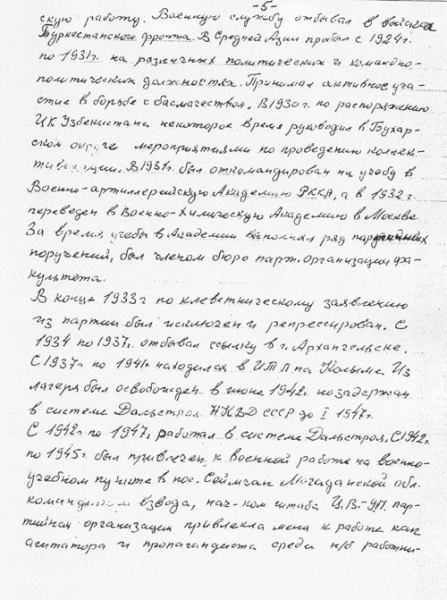 -5-
скую работу. Военную службу отбывал в войсках
Туркестанского фронта. В Средней Азии пробыл с 1924г.
по 1931г. на различных политических и командно-
политических должностях. Принимал активное уча-
стие в борьбе с басмачеством. В 1930г. по распоряжению
ЦК Узбекистана некоторое время руководил в Бухар-
ском округе мероприятиями по проведению коллек-
тивизации. В 1931г. был откомандирован на учебу в
Военно-артиллерийскую Академию РККА, а в 1932г.
переведен в Военно-Химическую Академию в Москве
За время учебы в Академии выполнял ряд партийных
поручений, был членом бюро парт. организации фа-
культета.
В конце 1933г по клеветническому заявлению
из партии был исключен и репрессирован. С
1934 по 1937г. отбывал ссылку в г. Архангельске.
С 1937г по 1941г находился в ИТЛ на Колыме. Из
лагеря был освобожден в июне 1942г. но задержан
в системе Дальстроя НКВД СССР до I 1947г.
С 1942г. по 1947г. работал в системе Дальстроя. С 1942г.
по 1945г. был привлечен к военной работе на военно-
учебном пункте в пос. Сеймчан Магаданской обл.
командиром взвода, нач-ком штаба Ц.В.-УП. пар-
тийная организация привлекла меня к работе как
агитатора и пропагандиста среди н/б работни-